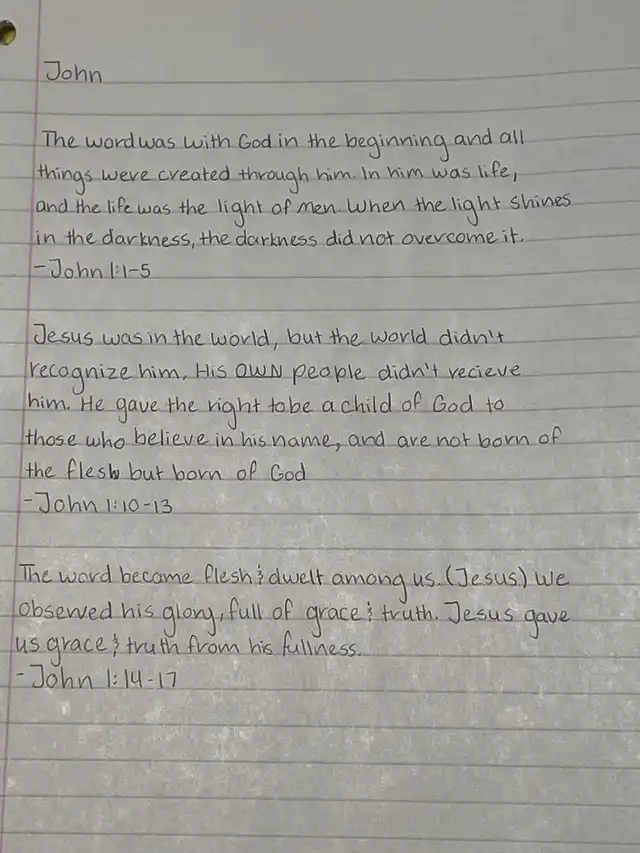 John
The word was with God in the beginning and all
things were created through him. In him was life,
and the life was the light of men. When the light shines
in the darkness, the darkness did not overcome it.
-John 1:1-5
Jesus was in the world, but the world didn't
recognize him, His OWN people didn't recieve
him. He gave the right to be a child of God to
those who believe in his name, and are not born of
the flesh but born of God
-John 1:10-13
The word became flesh & dwelt among us. (Jesus) We
observed his glory, full of grace & truth. Jesus gave
us grace & truth from his fullness.
-John 1:14-17